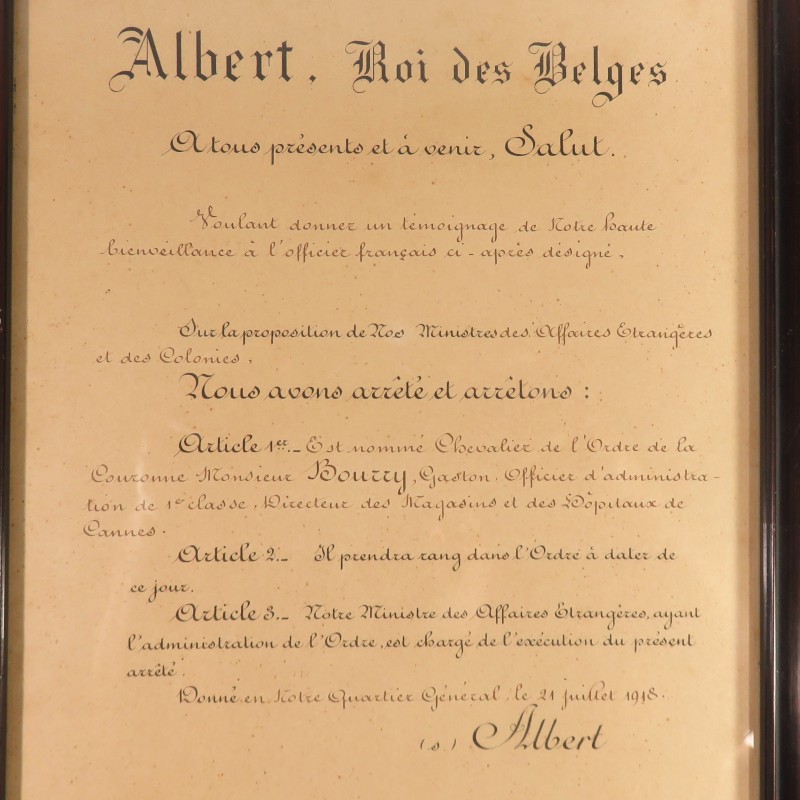 Albert, Roi des Belges
A tous présents et à venir, Salut.
Voulant donner un témoignage de Notre haute
bienveillance à l'officier français ci-après désigné,
Sur la proposition de Nos Ministres des Affaires Etrangères
et des Colonies,
Nous avons arrêté et arrêtons :
Article 1er.- Est nommé Chevalier de l'Ordre de la
Couronne Monsieur Bourry, Gaston, Officier d'administra-
tion de 1e classe, Directeur des Magasins et des Hôpitaux de
Cannes.
Article 2.- Il prendra rang dans l'Ordre à dater de
ce jour.
Article 3.- Notre Ministre des Affaires Étrangères, ayant
l'administration de l'Ordre, est chargé de l'exécution du présent
arrêté.
Donné en Notre Quartier Général, le 21 juillet 1918.
(s.) Albert